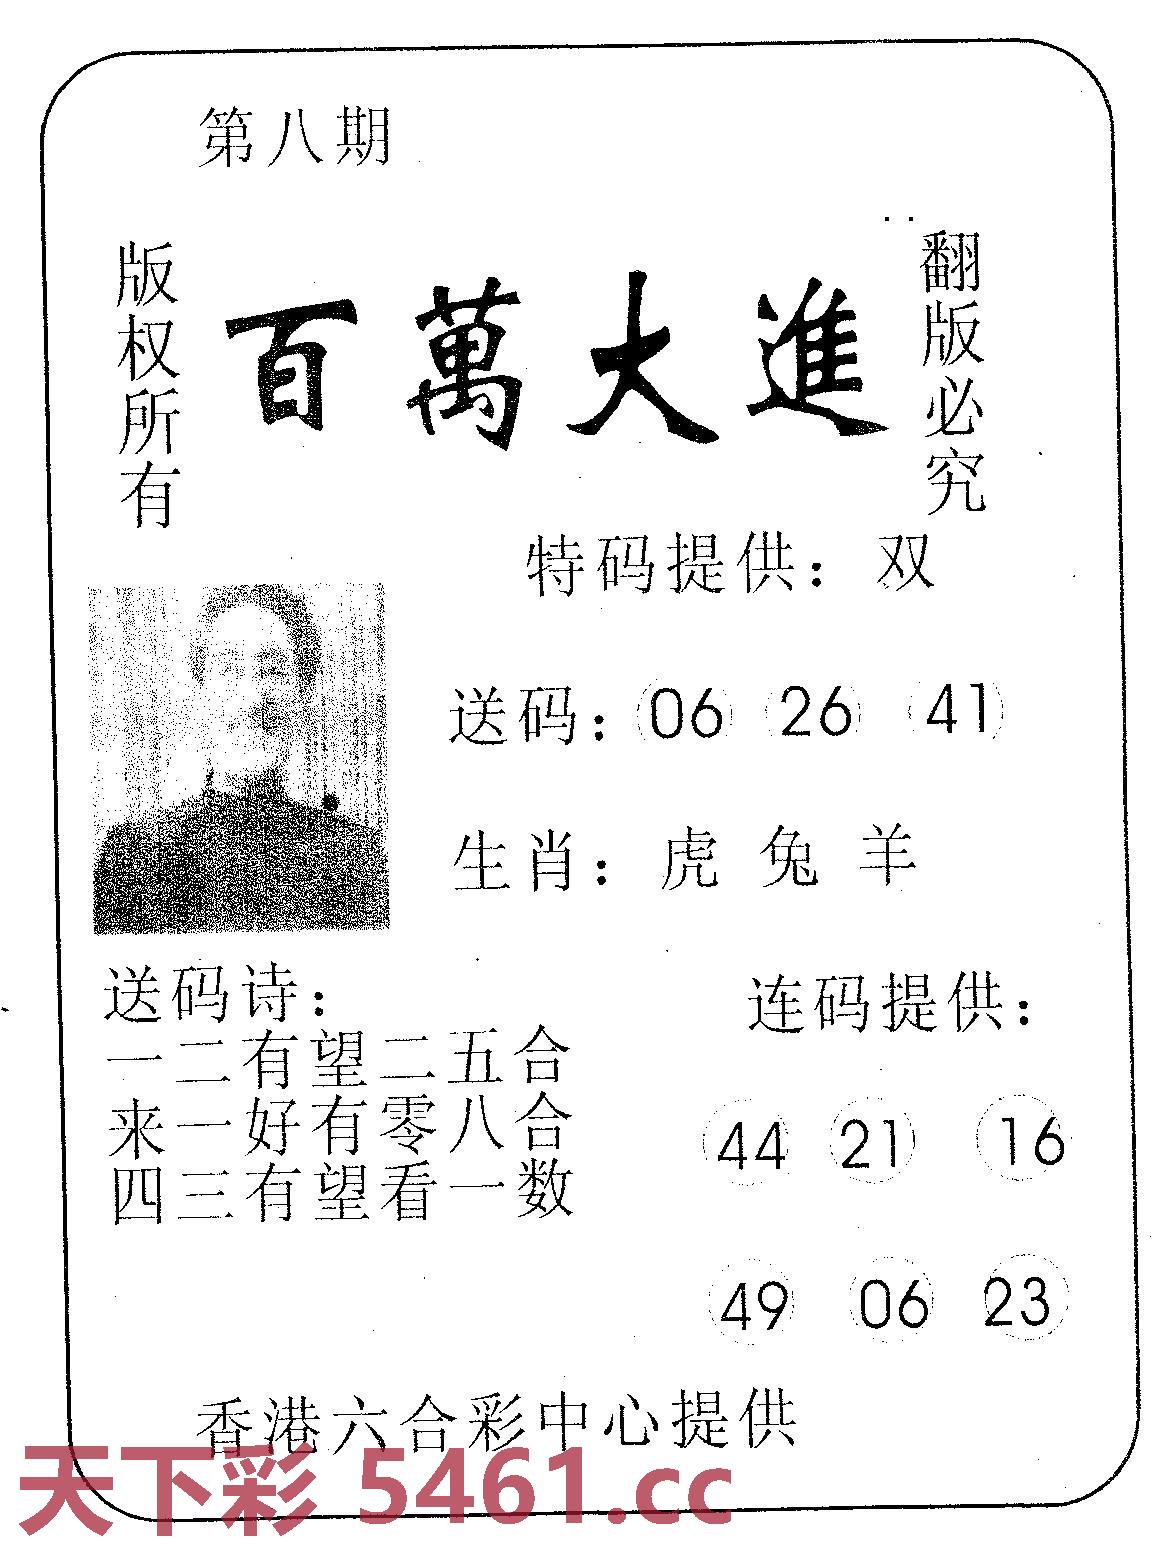 第八期
版权所有
百萬大進
翻版必究
特码提供：双
送码：06 26 41
生肖：虎 兔 羊
送码诗：
一二有望二五合
来一好有零八合
四三有望看一数
连码提供：
44 21 16
49 06 23
香港六合彩中心提供
天下彩 5461.cc